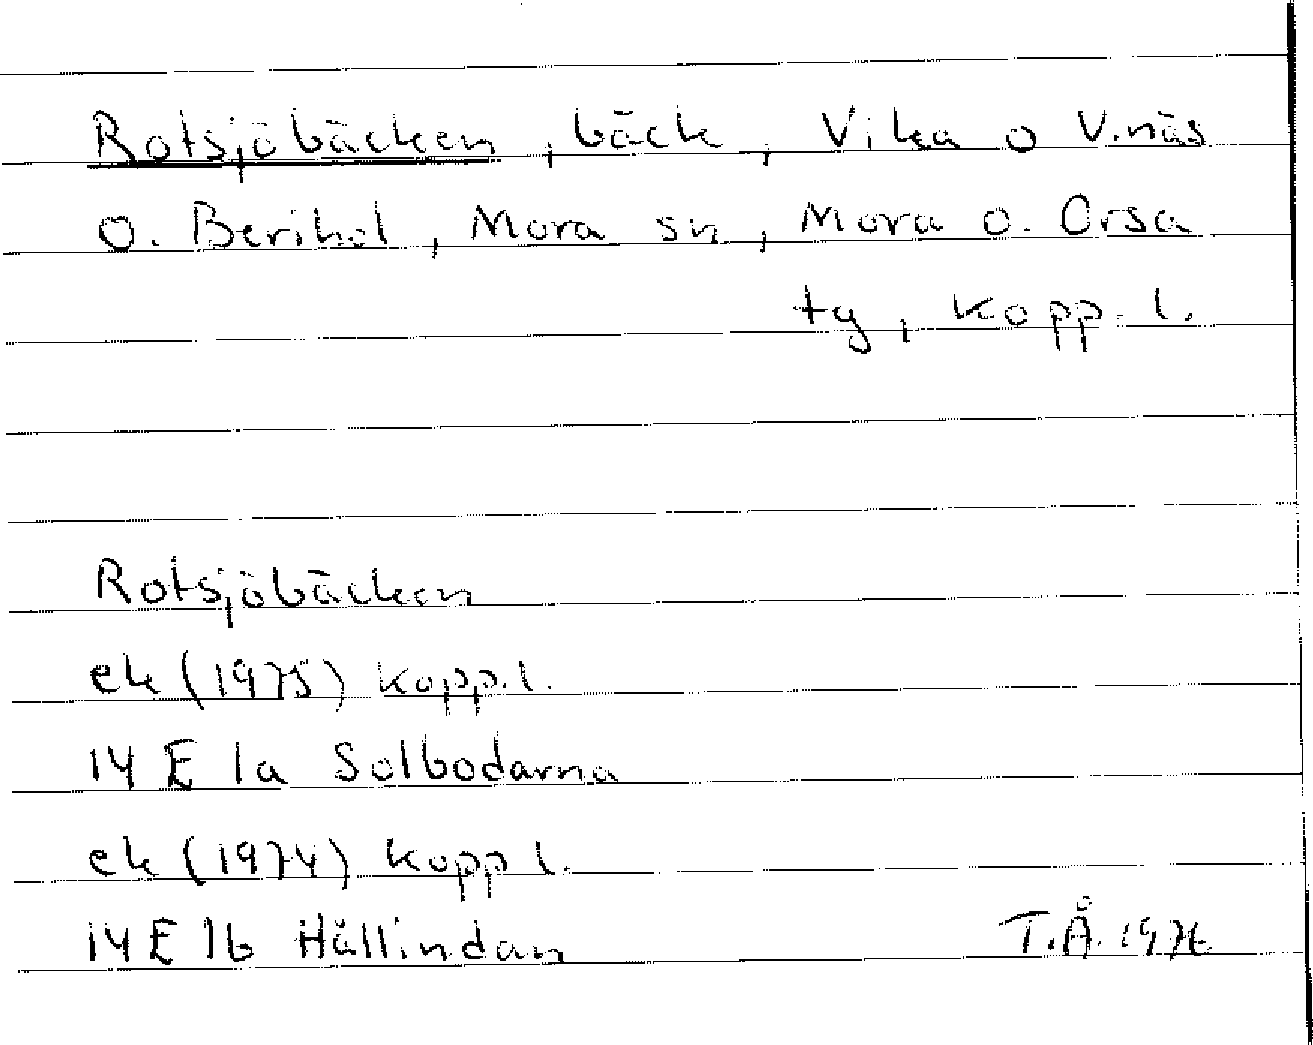 Rotsjöbäcken, bäck, Vika o V.näs
o. Berihol, Mora sn, Mora o. Orsa
tg, Kopp. l.
Rotsjöbäcken
ek (1975) Kopp.l.
14 E 1a Solbodarna
ek (1974) Kopp l.
14 E 1b Hällindan
T.Å. 1976